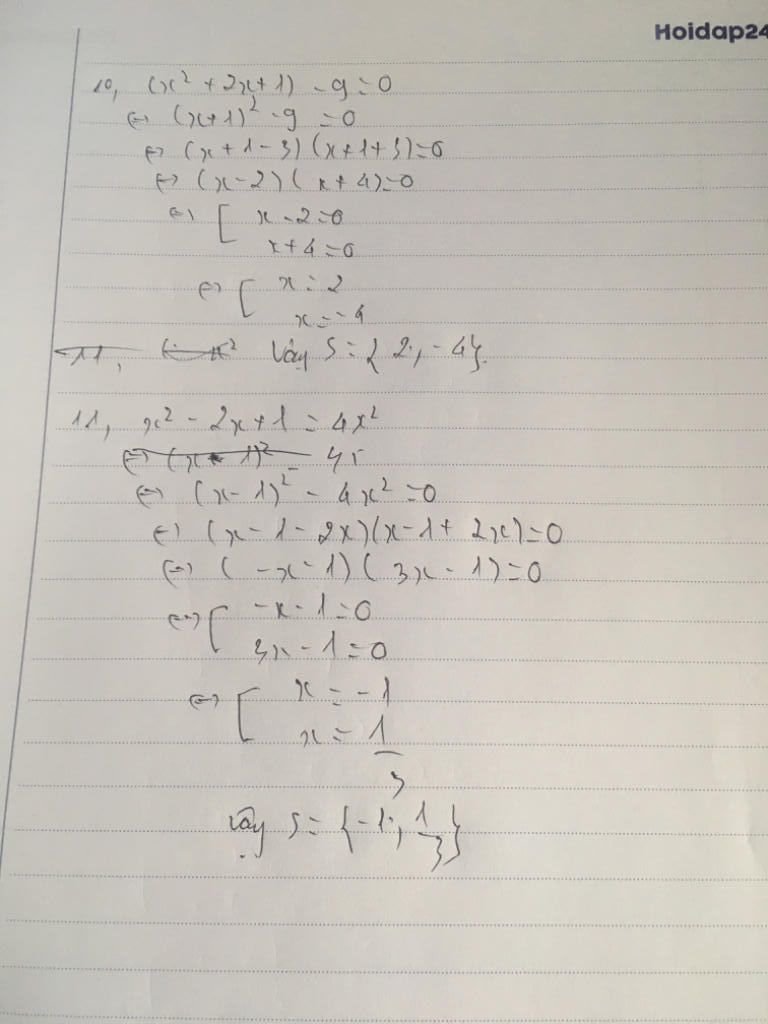 Hoidap24
10, (x² + 2x+1) - 9 = 0
⇔ (x+1)² - 9 = 0
⇔ (x+1-3)(x+1+3)=0
⇔ (x-2)(x+4)=0
⇔ [ x-2=0
x+4=0
⇔ [ x = 2
x = -4
11, Vậy S = { 2; -4}.
11, x² - 2x+1 = 4x²
⇔ (x-1)² =
⇔ (x-1)² - 4x² = 0
⇔ (x-1-2x)(x-1+2x)=0
⇔ (-x-1)(3x-1)=0
⇔ [ -x-1=0
3x-1=0
⇔ [ x = -1
x = 1/3
Vậy S = {-1; 1/3}